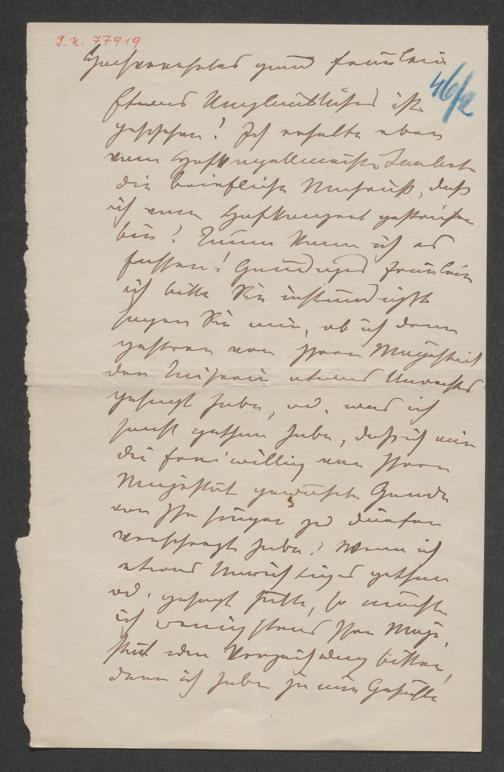 J. N. 77919
46/2
Hochverehrtes gnäd Fräulein
Etwas Unglaubliches ist
geschehen! Ich erhalte eben
vom
die briefliche Nachricht, daß
ich vom Hofkonzert gestrichen
bin! Kaum kann ich es
fassen! Gnädiges Fräulein
ich bitte Sie inständigst
sagen Sie mir, ob ich denn
gestern von Ihrer Majestät
der Kaiserin etwas Unrechtes
gesagt habe, od. was ich
sonst gethan habe, daß ich mir
die freiwillig von Ihrer
Majestät gewährte Gunde
vor Ihr singen zu dürfen
verscherzt habe? Wenn ich
etwas Unrichtiges gethan
od. gesagt hätte, so möchte
ich wenigstens Ihre Maje-
stät um Verzeihung bitten,
denn ich habe ja nur Gefühle